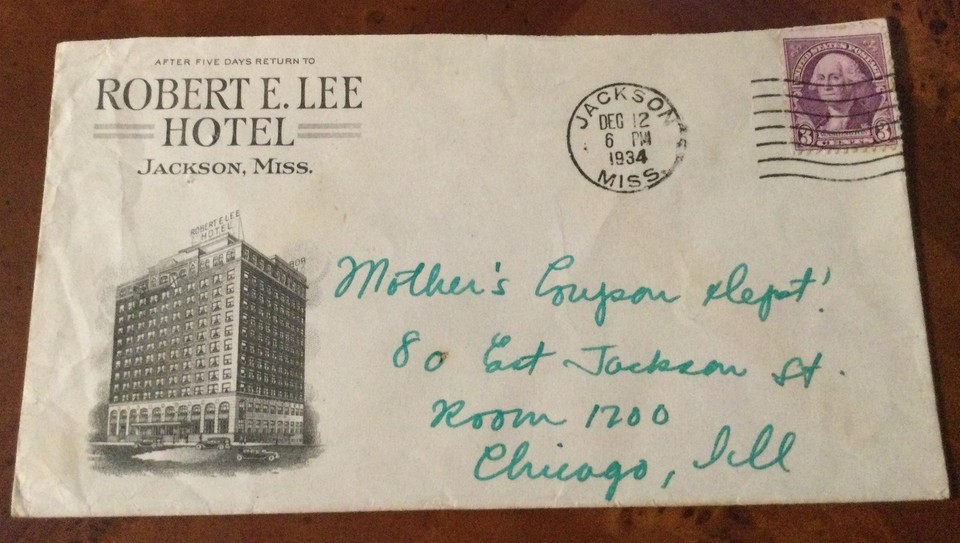 AFTER FIVE DAYS RETURN TO
ROBERT E. LEE
HOTEL
JACKSON, MISS.
JACKSON
DEC 12
6 PM
1934
MISS.
UNITED STATES POSTAGE
3 3
ROBERT E. LEE
HOTEL
Mother's Coupson Dept!
80 Est Jackson St.
Room 1700
Chicago, Ill